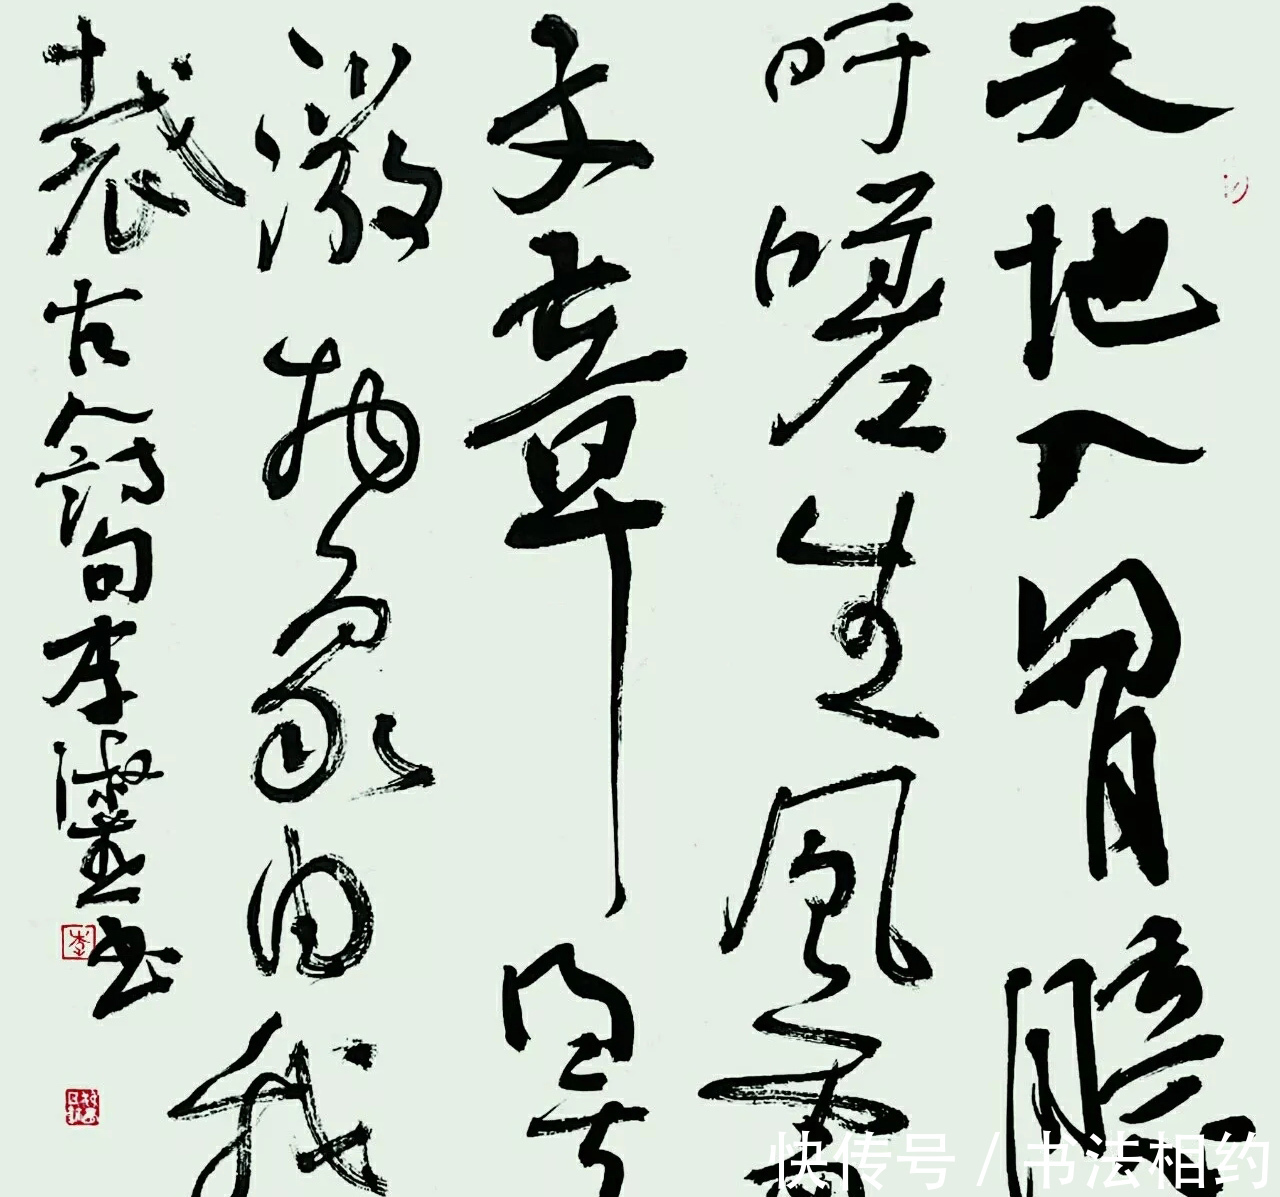 天地入胷臆
吁嗟生風雷
文章得
微物象由我
裁古人詩句李淑書
李
快传号 / 书法相约